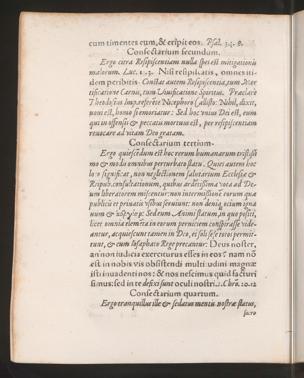 cum timentes eum, & eripit eos. Psal. 34. 8.
Consectarium secundum.
Ergo citra Resipiscentiam nulla spes est mitigationis
malorum. Luc. 13. Nisi respiscatis, omnes iti-
dem peribitis. Constat autem Resipiscentia, tum Mor
tificatione Carnis, tum Vivificatione Spiritus. Praeclarè
Theodosius Imp. referēte Nicephoro Callisto: Nihil, dixit,
novi est, homo si emoriatur: Sed hoc unius Dei est, eum
qui in offensis & peccatis mortuus est, per resipiscentiam
revocare ad vitam Deo gratam.
Consectarium tertium.
Ergo quiescēdum est hoc rerum humanarum tristissi
mo & modis omnibus perturbato statu. Quies autem hoc
loco significat, non neglectionem salutarium Ecclesiæ &
Reipub. consultationum, quibus ardētissima vota ad De-
um liberatorem miscentur: non intermissionē rerum quæ
publicis et privatis usibus serviunt: non deniq; ocium ignav
uum & Sed eum Animi statum, in quo positi,
licet omnia elemēta in eorum perniciem conspirasse vide-
antur, acquiescunt tamen in Deo, ei soli se totos permit-
tunt, & cum Iosaphato Rege precantur: Deus noster,
an non iudicia exerciturus esses in eos? nam nō
est in nobis vis obsistendi multitudini magnæ
isti invadenti nos: & nos nescimus quid facturi
simus: sed in te defixi sunt oculi nostri. 2. Chro. 20. 12
Consectarium quartum.
Ergo tranquillus ille & sedatus mentis nostræ status,